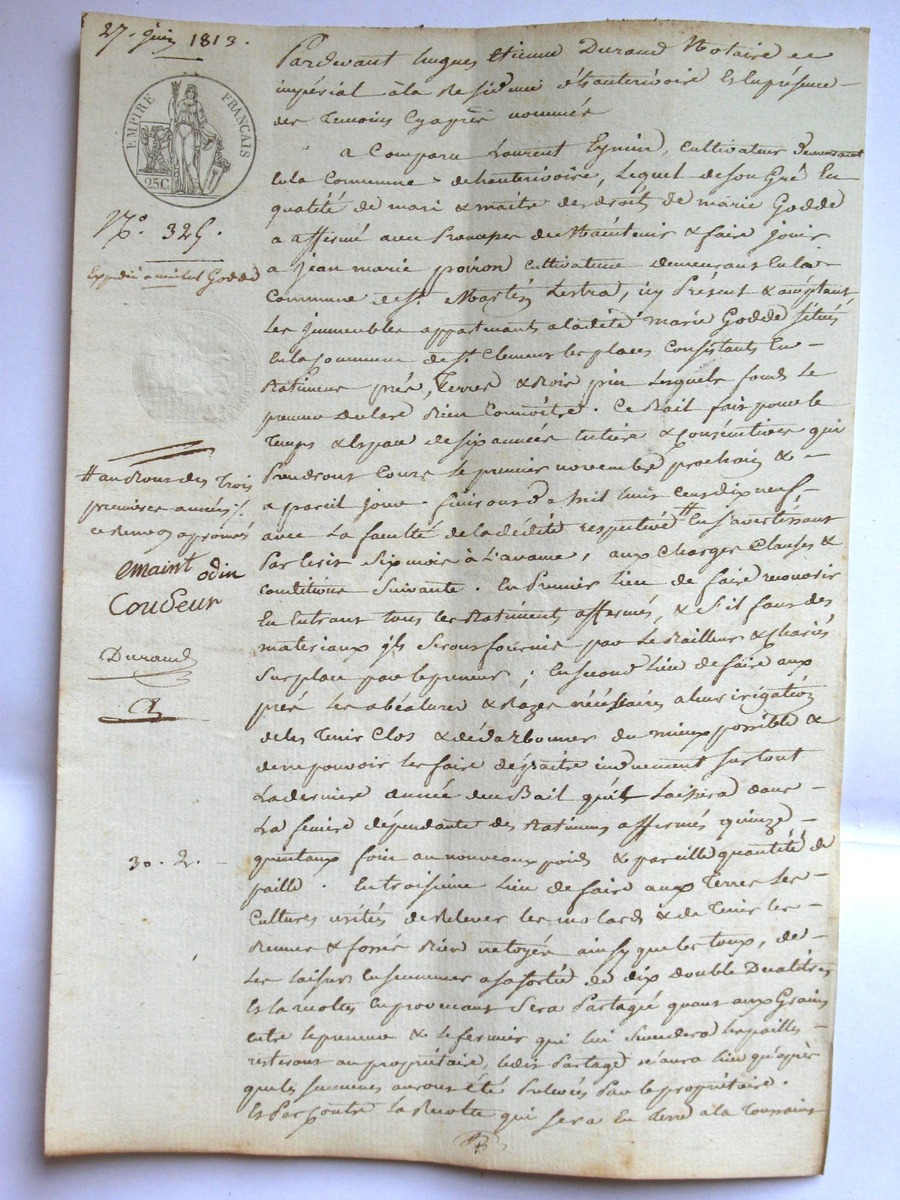 27. juin 1813.
EMPIRE FRANÇAIS
25C
N.° 325.
Expédié a michel Godde
Pardevant hugues Etienne Durand Notaire
impérial à la Residence d'hauterivoire Et En présence
des Temoins Cyaprès nommés
a Comparu Laurent Eymin, Cultivateur demeurant
En la Commune d'hauterivoire, Lequel de son Gré En
qualité de mari & maitre des droits de marie Godde
a affermé avec Promesse de Maintenir & faire jouir
a jean marie poiron Cultivateur demeurant En la
Commune de St. Martin Lestra, icy Présent & acceptant
Les immeubles appartenants a la dite marie Godde Situés
En la Commune de St. Clement les places Consistants En
Batiments prés, Terres & Bois pin Lesquels fonds Le
preneur declare Bien Connoitre. Ce Bail fait pour le
Temps & Espace de six années Entiere & Consécutives qui
Prendront Cours Le premier novembre prochain &
a pareil jour finiront a mil huit Cent dix neuf
avec La faculté de la dédite respective # En S'avertissant
Par Ecrit Six mois à L'avance, aux Charges Clauses &
Conditions Suivante. En Premier Lieu de faire
En Entrant tous les Batiments affermés, & S'il faut des
materiaux ils Seront fournis par Le Bailleur & chariés
Sur place par le preneur; En second Lieu de faire aux
prés Les abéalures & Razes nécéssaires a leur irigation
de les Tenir Clos & dédarbonner du mieux possible &
de ne pouvoir les faire dépaitre surtout
La derniere année du Bail qu'il Laissera dans
La feniere dépendante des Batiments affermés quinze
quintaux foin au nouveaux poids & pareille quantité de
paille. En troisième Lieu de faire aux Terres Les
Cultures usités de Relever les molards & de Tenir les
& fossés Bien netoyés ainsy que les toux, de
Les laisser Ensemencer a sa sortie de dix double Decalitres
Et la recoltes En provenant Sera Partagé quant aux Grains
Entre le preneur & le fermier qui lui Succedera les pailles
resteront au propriétaire, ledit Partage n'aura Lieu qu'après
que les Semences auront été Prelevées Par le propriétaire.
Et Par Contre La Recolte qui Sera En terre a la Toussaint
# au bout des Trois
premieres années.
ce Renvoy approuvés
emaint odin
Coudeur
Durand
30. 2.